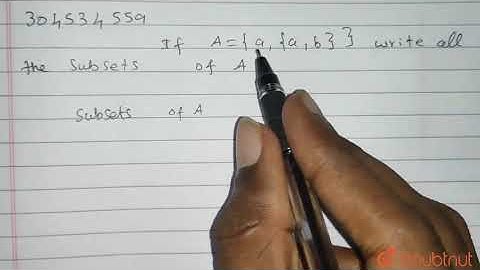 304534559
If A={a,{a,b}} write all
the subsets of A
subsets of A
doubtnut